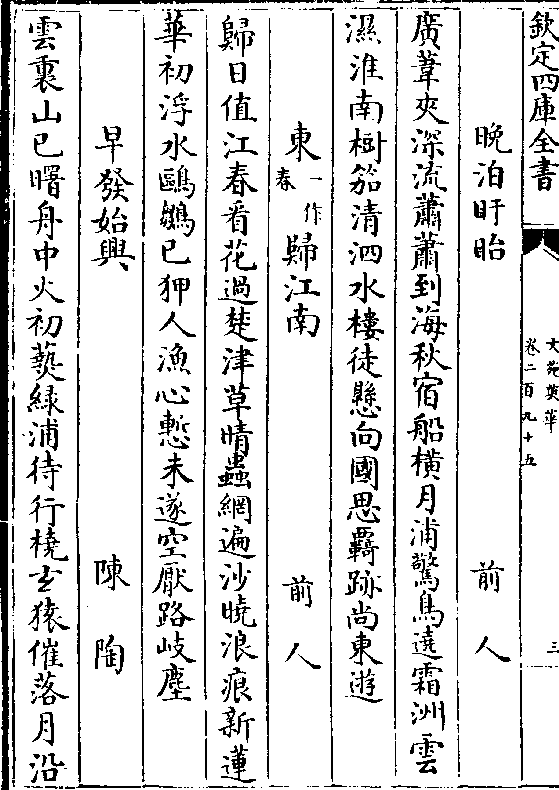 欽定四庫全書
文苑英華
卷二百九十五
三
晚泊盱眙 前人
廣葦夾深流蕭蕭到海秋宿船横月浦驚鳥遶霜洲雲
濕淮南樹笳清泗水樓徒懸向國思羇跡尚東遊
東一作春歸江南 前人
歸日值江春看花過楚津草晴蟲網遍沙曉浪痕新蓮
華初浮水鷗雛已狎人漁心慙未遂空厭路岐塵
早發始興 陳陶
雲裏山已曙舟中火初爇緑浦待行橈玄猿催落月沿